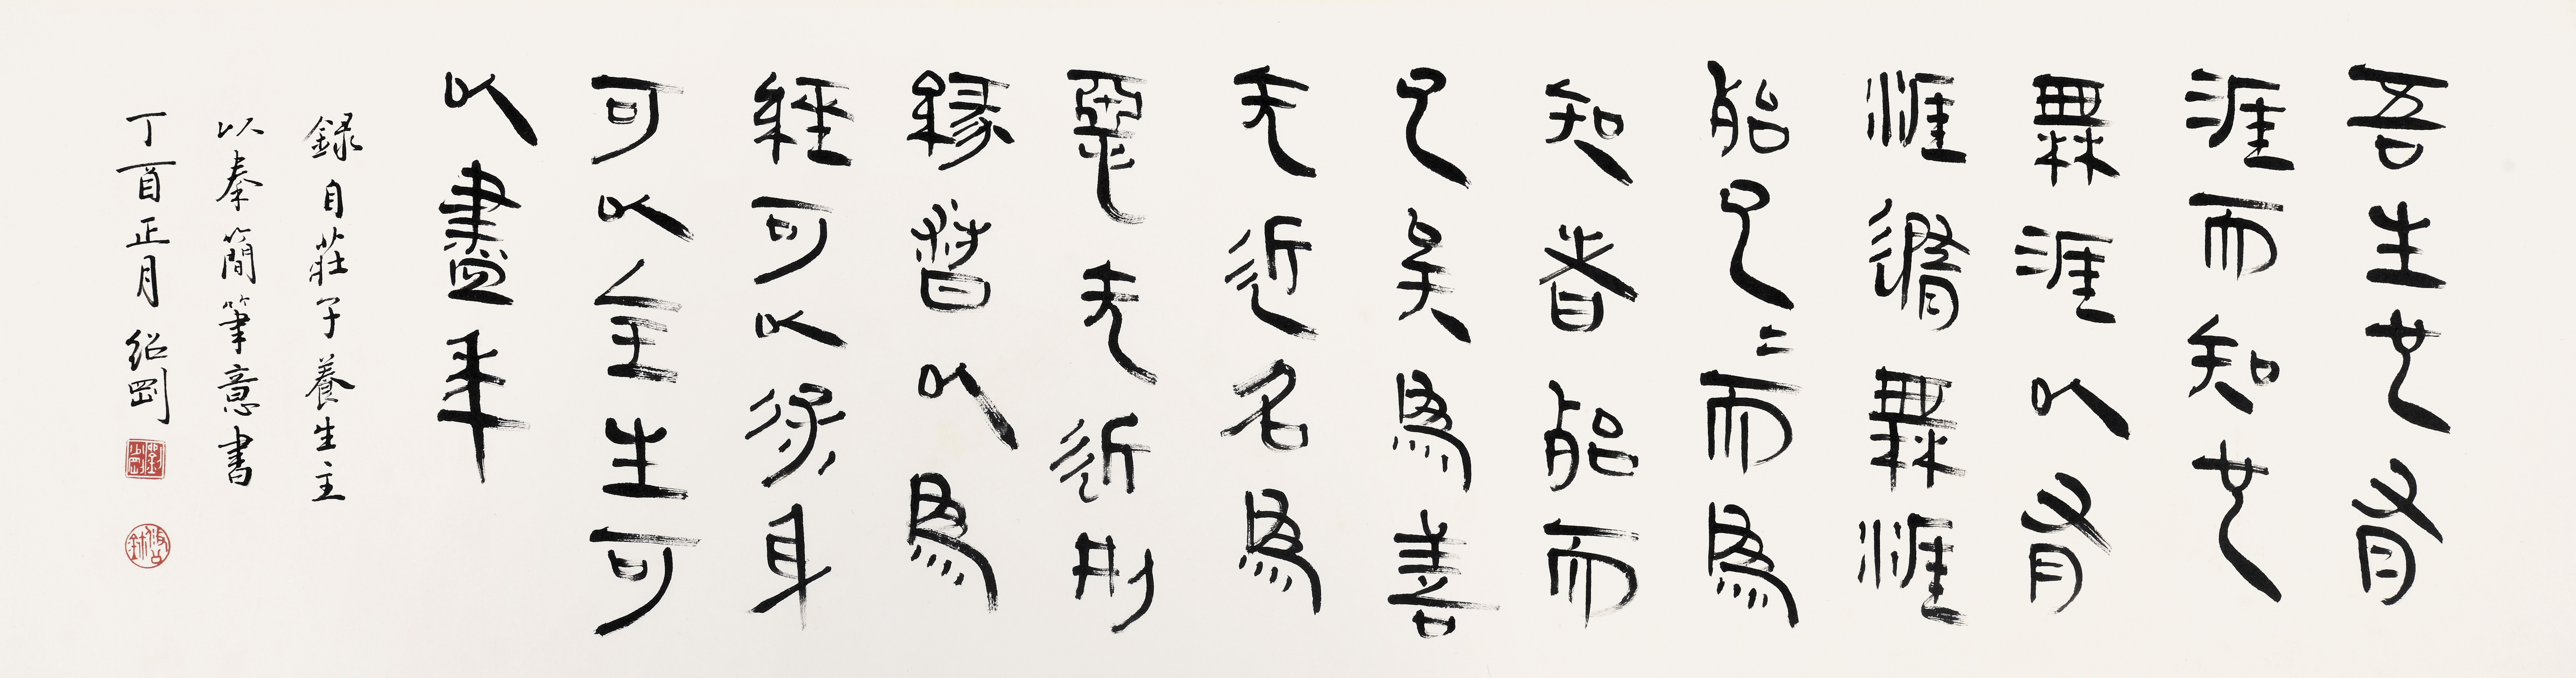 吾生也有
涯而知也
無涯以有
涯隨無涯
殆已〻而為
知者殆而
已矣為善
无近名為
惡无近刑
緣督以為
經可以保身
可以全生可
以盡年
錄自莊子養生主
以秦簡筆意書
丁酉正月紹剛